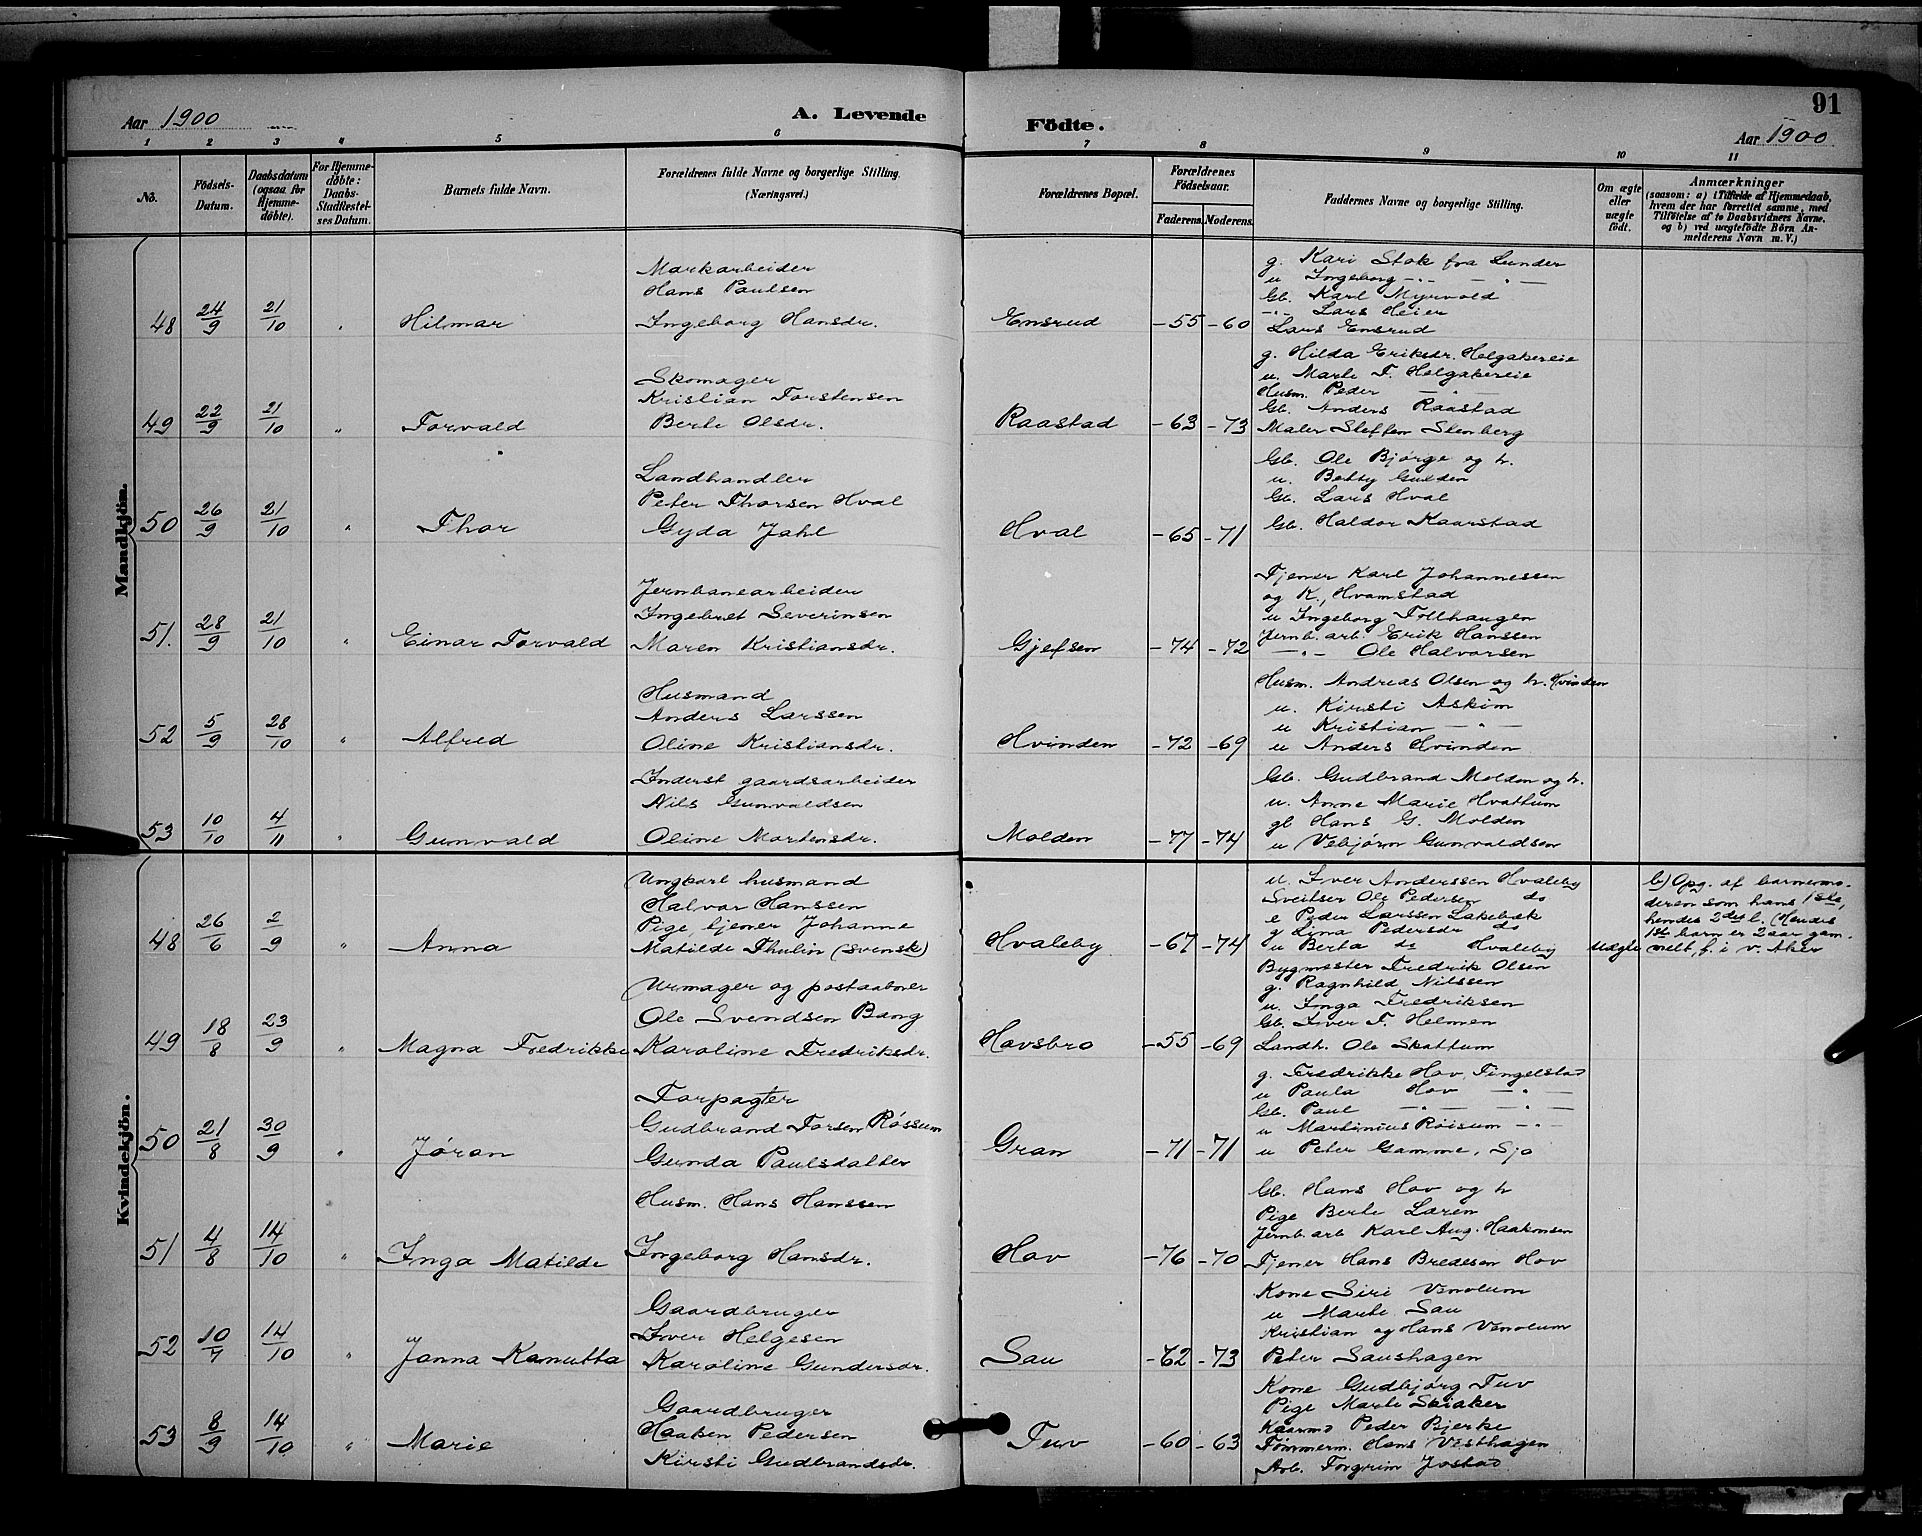 Aar 1900
A. Levende
Födte.
91
Aar 1900
1 2 3 4 5 6 7 8 9 10 11
No.
Födsels-Datum.
Daabsdatum (ogsaa for Hjemmedöbte).
For Hjemmedöbte: Daabs-Stadfæstelses Datum.
Barnets fulde Navn.
Forældrenes fulde Navne og borgerlige Stilling. (Næringsvei.)
Forældrenes Bopæl.
Forældrenes Födselsaar.
Faderens. Moderens.
Faddernes Navne og borgerlige Stilling.
Om ægte eller uægte födt.
Anmærkninger
(saasom: a) i Tilfælde af Hjemmedaab, hvem der har forrettet samme, med Tilföielse af to Daabsvidners Navne, og b) ved uægtefödte Börn Anmelderens Navn m. V.)
Mandkjön.
48 24/9 21/10 " Hilmar
Markarbeider
Hans Paulsen
Ingeborg Hansdr.
Ensrud -55 -60
g. Kari Stok fra Lunder
u Ingeborg -"- -"-
Gb. Karl Myrvold
-"- Lars Heier
Lars Ensrud
49 22/9 21/10 " Torvald
Skomager
Kristian Torstensen
Berte Olsdr.
Raastad -63 -73
g. Hilda Eriksdr. Helgakereie
u. Marte T. Helgakereie
Husm. Peder -"-
Gb. Anders Raastad
Maler Steffen Stenberg
50 26/9 21/10 " Thor
Landhandler
Peter Thorsen Hval
Gyda Jahl
Hval -65 -71
Gb. Ole Bjørge og h.
u. Betty Gulden
Gb. Lars Hval
Gb. Haldor Kaarstad
51. 28/9 21/10 " Einar Torvald
Jernbanearbeider
Ingebret Severinsen
Maren Kristiansdr.
Gjefsen -74 -72
Tjener Karl Johannessen
og K., Hvamstad
u Ingeborg Tollhaugen
Jernb. arb. Erik Hanssen
-"- Ole Halvorsen
52 5/9 28/10 " Alfred
Husmand
Anders Larssen
Oline Kristiansdr.
Hvinden -72 -69
Husm. Andreas Olsen og h. Hvinden
u. Kirsti Askim
u Kristian -"-
u Anders Hvinden
53 10/10 4/11 " Gunvald
Inderst gaardsarbeider
Nils Gunvaldsen
Oline Martensdr.
Molden -77 -74
Gb. Gudbrand Molden og h.
u. Anne Marie Hvattum
gb Hans G. Molden
u Vebjørn Gunvaldsen
Kvindekjön.
48 26/6 2/9 " Anna
Ungkarl husmand
Halvor Hanssen
Pige, tjener Johanne
Matilde Thulin (svensk)
Hvaleby -67 -74
u. Iver Anderssen Hvaleby
Sveitser Ole Pedersen do
e Peder Larssen Lakebæk
g Lina Pedersdr do
u Berta do Hvaleby
uægte
b) Opg. af barnemo-
deren som hans 1ste,
hendes 2det b. (Hendes
1ste barn er 2 aar gam-
melt, f. i v. Aker
49 18/8 23/9 " Magna Fredrikke
Urmager og postaabner
Ole Svendsen Bang
Karoline Fredriksdr.
Hovsbro -55 -69
Bygmester Fredrik Olsen
g. Ragnhild Nilssen
u. Inga Fredriksen
Gb. Iver T. Helmen
Landh. Ole Skattum
50 21/8 30/9 " Jøran
Forpagter
Gudbrand Torsen Røssum
Gunda Paulsdatter
Gran -71 -71
g. Fredrikke Hov, Tingelstad
u Paula Hov -"-
Gb. Paul -"- -"-
u Martinius Røisum -"-
u Peter Gamme, Sjo
51 4/8 14/10 " Inga Matilde
Husm. Hans Hanssen
Ingeborg Hansdr.
Hov -76 -70
Gb. Hans Hov og h
Pige Berte Laren
Jernb. arb Karl Aug. Haakonsen
Tjener Hans Bredesen Hov
52 10/7 14/10 " Janna Kanutta
Gaardbruger
Iver Helgesen
Karoline Gundersdr.
Sau -62 -73
Kone Siri Venolum
u Marte Sau
Kristian og Hans Venolum
Peter Saushagen
53 8/9 14/10 " Marie
Gaardbruger
Haaken Pedersen
Kirsti Gudbrandsdr.
Tuv -60 -63
Kone Gudbjørg Tuv
Pige Marte Skiaker
Kaarmd Peder Bjerke
Tømmerm. Hans Vesthagen
Arb. Torgrim Jostad